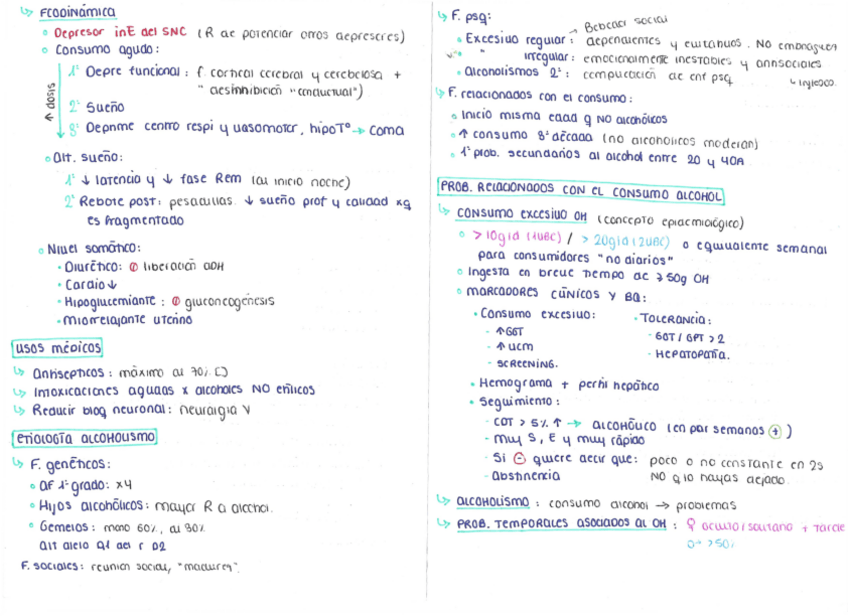 ↳ FCODINÁMICA
• Depresor inE del SNC (R de potenciar otros depresores)
• Consumo agudo:
↑ dosis
1º Depre funcional: f. cortical cerebral y cerebelosa +
"desinhibición "conductual")
2º Sueño
3º Deprime centro respi y vasomotor, hipoTº → coma
• Alt. sueño:
1º ↓ latencia y ↓ fase Rem (al inicio noche)
2º Rebote post: pesadillas. ↓ sueño prof y calidad xq
es fragmentado
• Nivel somático:
• Diurético: liberación ADH
• Cardio ↓
• Hipoglucemiante: gluconeogénesis
• Miorrelajante uterino
USOS MÉDICOS
↳ Antisépticos: máximo al 70% []
↳ Intoxicaciones agudas x alcoholes NO etílicos
↳ Reducir bloq neuronal: neuralgia V
ETIOLOGÍA ALCOHOLISMO
↳ F. genéticos:
• AF 1º grado: x4
• Hijos alcohólicos: mayor R a alcohol.
• Gemelos: mono 60%, di 30%
Alt alelo A1 del r D2
F. sociales: reunión social, "madurez".
↳ F. psq:
→ Bebedor social
• Excesivo regular: dependientes y eutánuos. No embriaguen
• " irregular: emocionalmente inestables y antisociales
• Alcoholismos 2º: complicación de enf psq
↳ F. relacionados con el consumo:
• Inicio misma edad q NO alcohólicos
• ↑ consumo 3ª década (no alcohólicos moderan)
• 1º prob. secundarios al alcohol entre 20 y 40A
PROB. RELACIONADOS CON EL CONSUMO ALCOHOL
↳ CONSUMO EXCESIVO OH (concepto epidemiológico)
• >10g/d (1UBC) / >20g/d (2UBC) o equivalente semanal
para consumidores "no diarios"
• Ingesta en breve tiempo de >50g OH
• MARCADORES CLÍNICOS Y BQ:
• Consumo excesivo:
- ↑GGT
- ↑VCM
- SCREENING.
• TOLERANCIA:
- GOT/GPT >2
- HEPATOPATÍA.
• Hemograma + perfil hepático
• Seguimiento:
- CDT > 5% ↑ → alcohólico (en par semanas +)
- Muy S, E y muy rápido
- Si ⊖ quiere decir que: poco o no constante en 2s
- Abstinencia
NO q lo hayas dejado.
↳ ALCOHOLISMO: consumo alcohol → problemas
↳ PROB. TEMPORALES ASOCIADOS AL OH: ♀ oculto/solitario + tarde